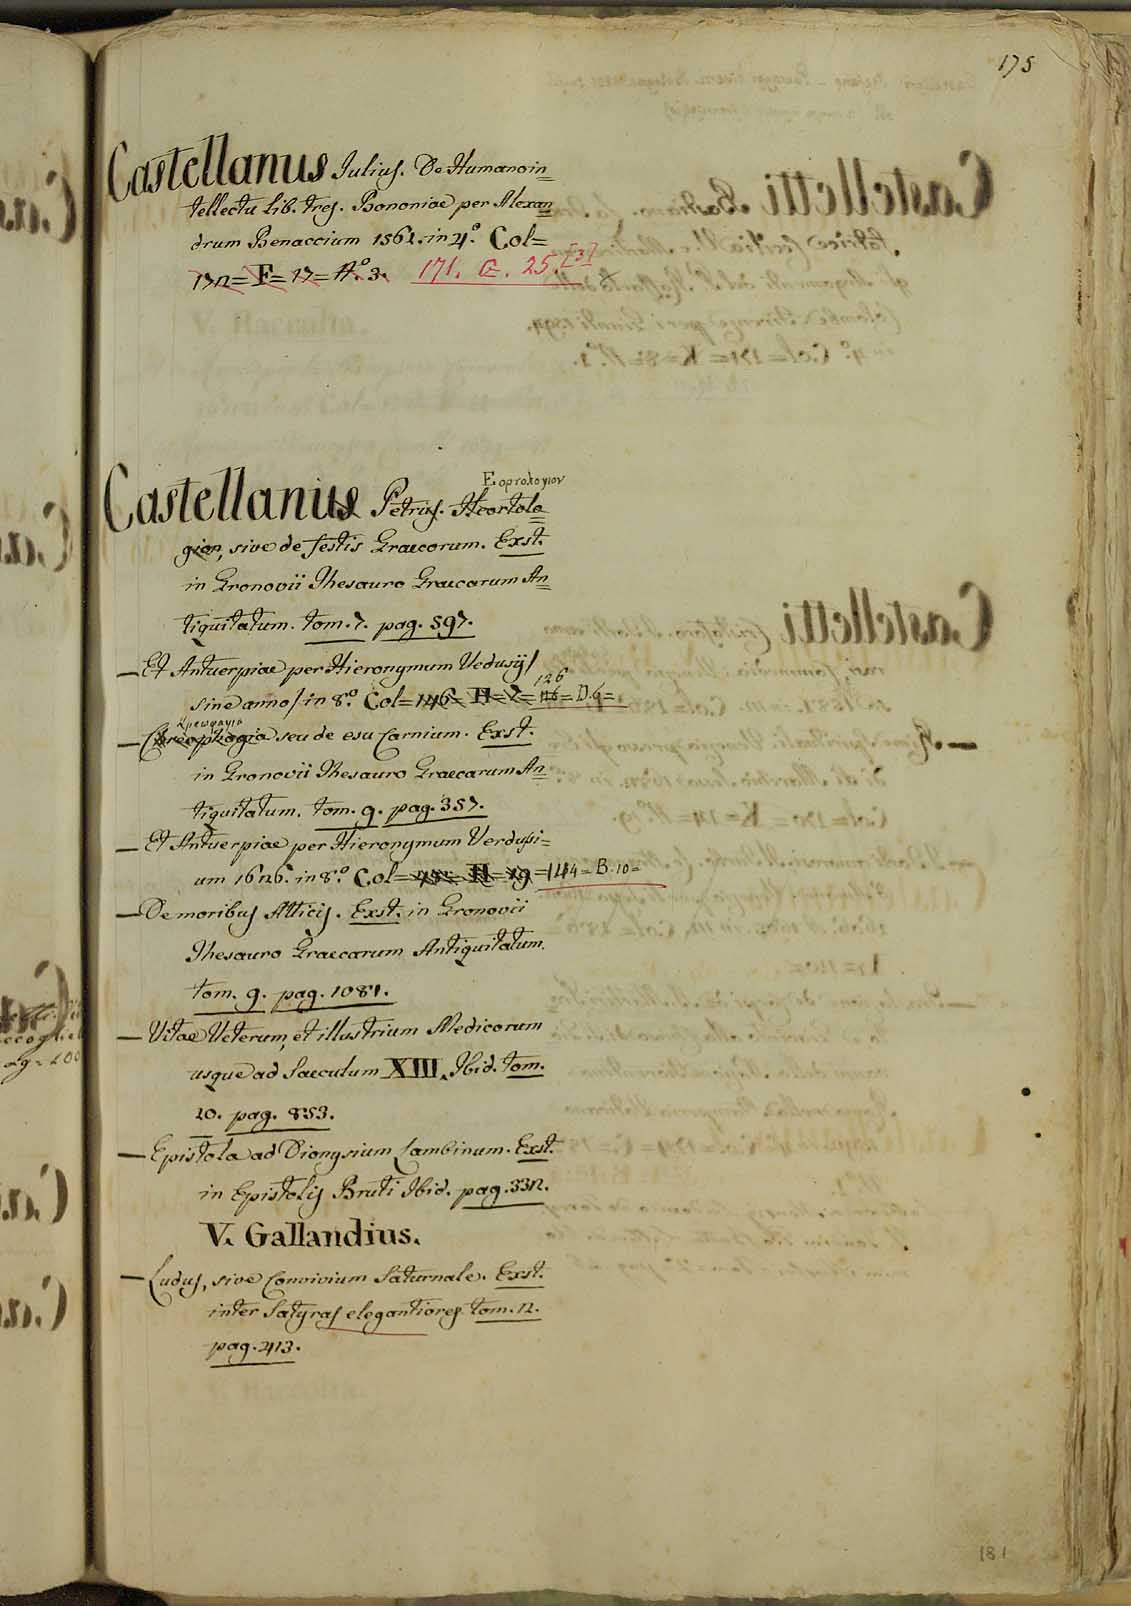 175
Castellanus Julius. De Humano in=
tellectu Lib. tres. Bononiae per Alexan=
drum Benaccium 1561. in 4.º Col=
172= F= 17= N.º 3. 171. C. 25. [3]
Castellanus Petrus. Heortolo=
Εορτολογιον
gion, sive de festis Graecorum. Exst.
in Gronovii Thesauro Graecarum An=
tiquitatum. tom. 7. pag. 597.
— Et Antuerpiae per Hieronymum Vedusÿ/
sine anno/ in 8.º Col= 146= H= 7= 116= D.6=
126
— Chreophagia seu de esu Carnium. Exst.
Κρεωφαγια
in Gronovii Thesauro Graecarum An=
tiquitatum. tom. 9. pag. 357.
— Et Antuerpiae per Hieronymum Verdusi=
um 1626. in 8.º Col= H= 19= 144= B. 10=
— De moribus Atticis. Exst. in Gronovii
Thesauro Graecarum Antiquitatum.
tom. 9. pag. 1081.
— Vitae Veterum, et illustrium Medicorum
usque ad Saeculum XIII. Ibid. tom.
10. pag. 853.
— Epistola ad Dionysium Lambinum. Exst.
in Epistolis Bruti Ibid. pag. 332.
V. Gallandius.
— Ludus, sive Convivium Saturnale. Exst.
inter Satyras elegantiores tom. 12.
pag. 413.
181